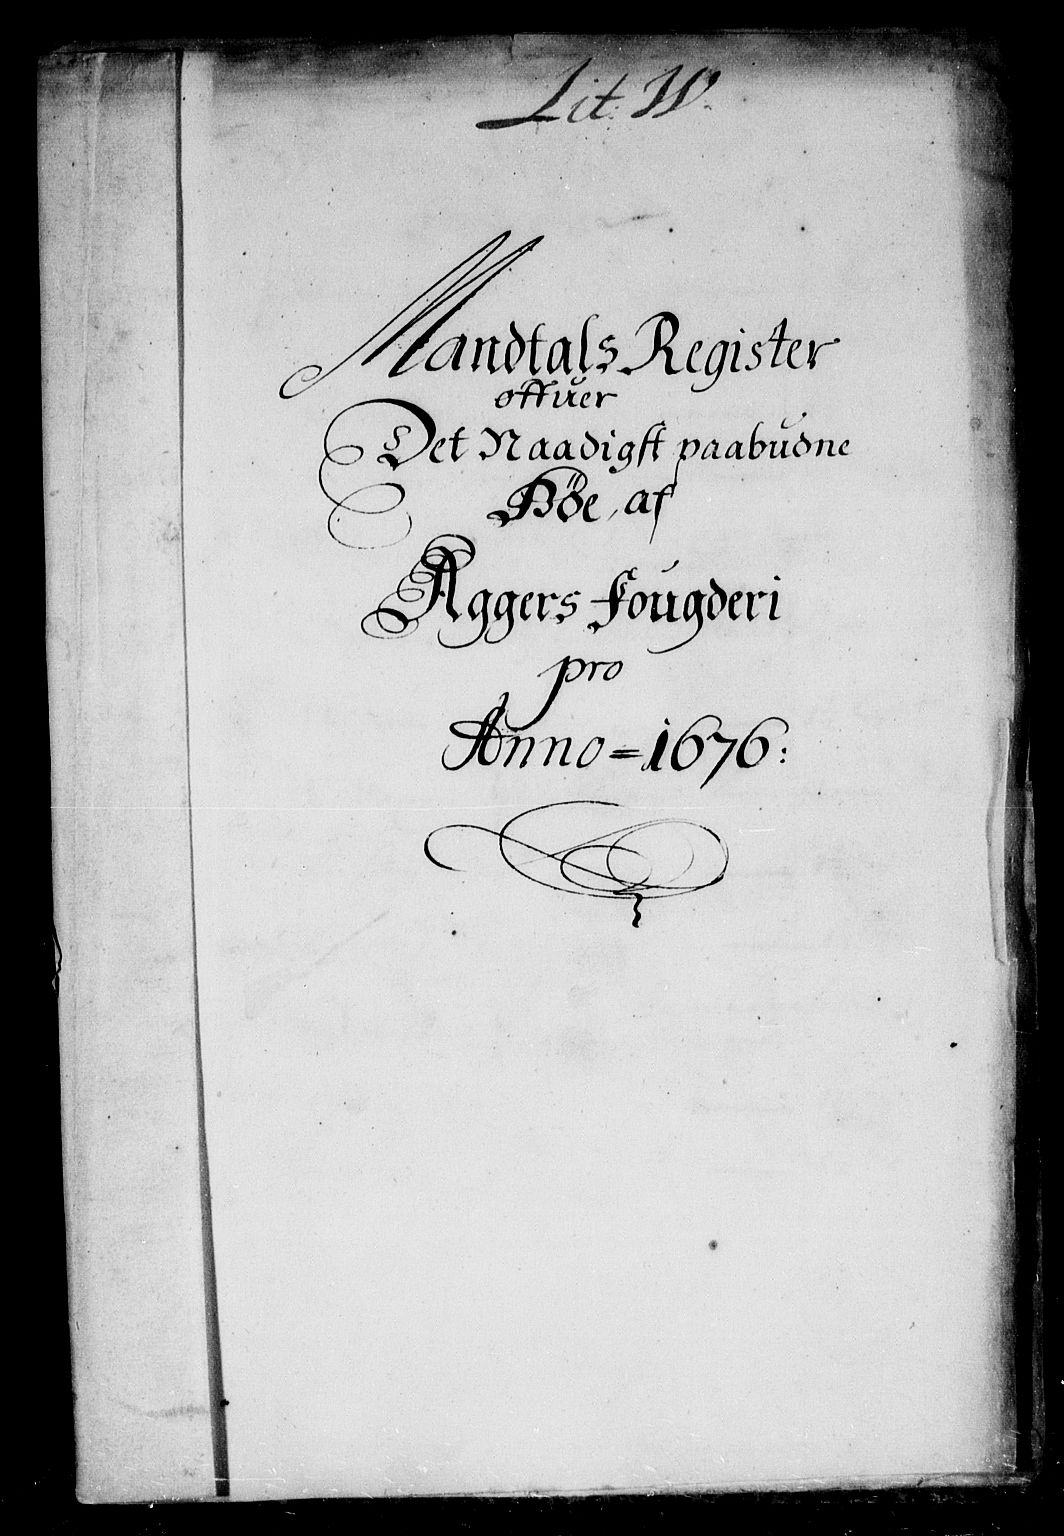 Lit: W.
Mandtals Register
offuer
Det Naadigst paabudne
Höe, af
Aggers Fougderi
pro
Anno = 1676: